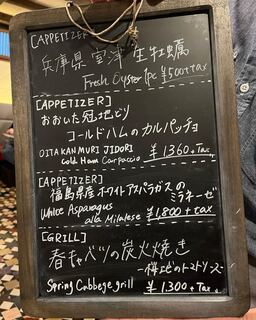 [APPETIZER]
兵庫県 室津 生牡蠣
Fresh Oyster 1pc ¥500+tax
[APPETIZER]
おおいた冠地どり
コールドハムのカルパッチョ
OITA KANMURI JIDORI
Cold Ham Carpaccio ¥1360+Tax
[APPETIZER]
福島県産ホワイトアスパラガスの
ミラネーゼ
White Asparagus
alla Milalese ¥1,800+tax
[GRILL]
春キャベツの炭火焼き
のトマトソース
Spring Cabbege grill ¥1300+Tax